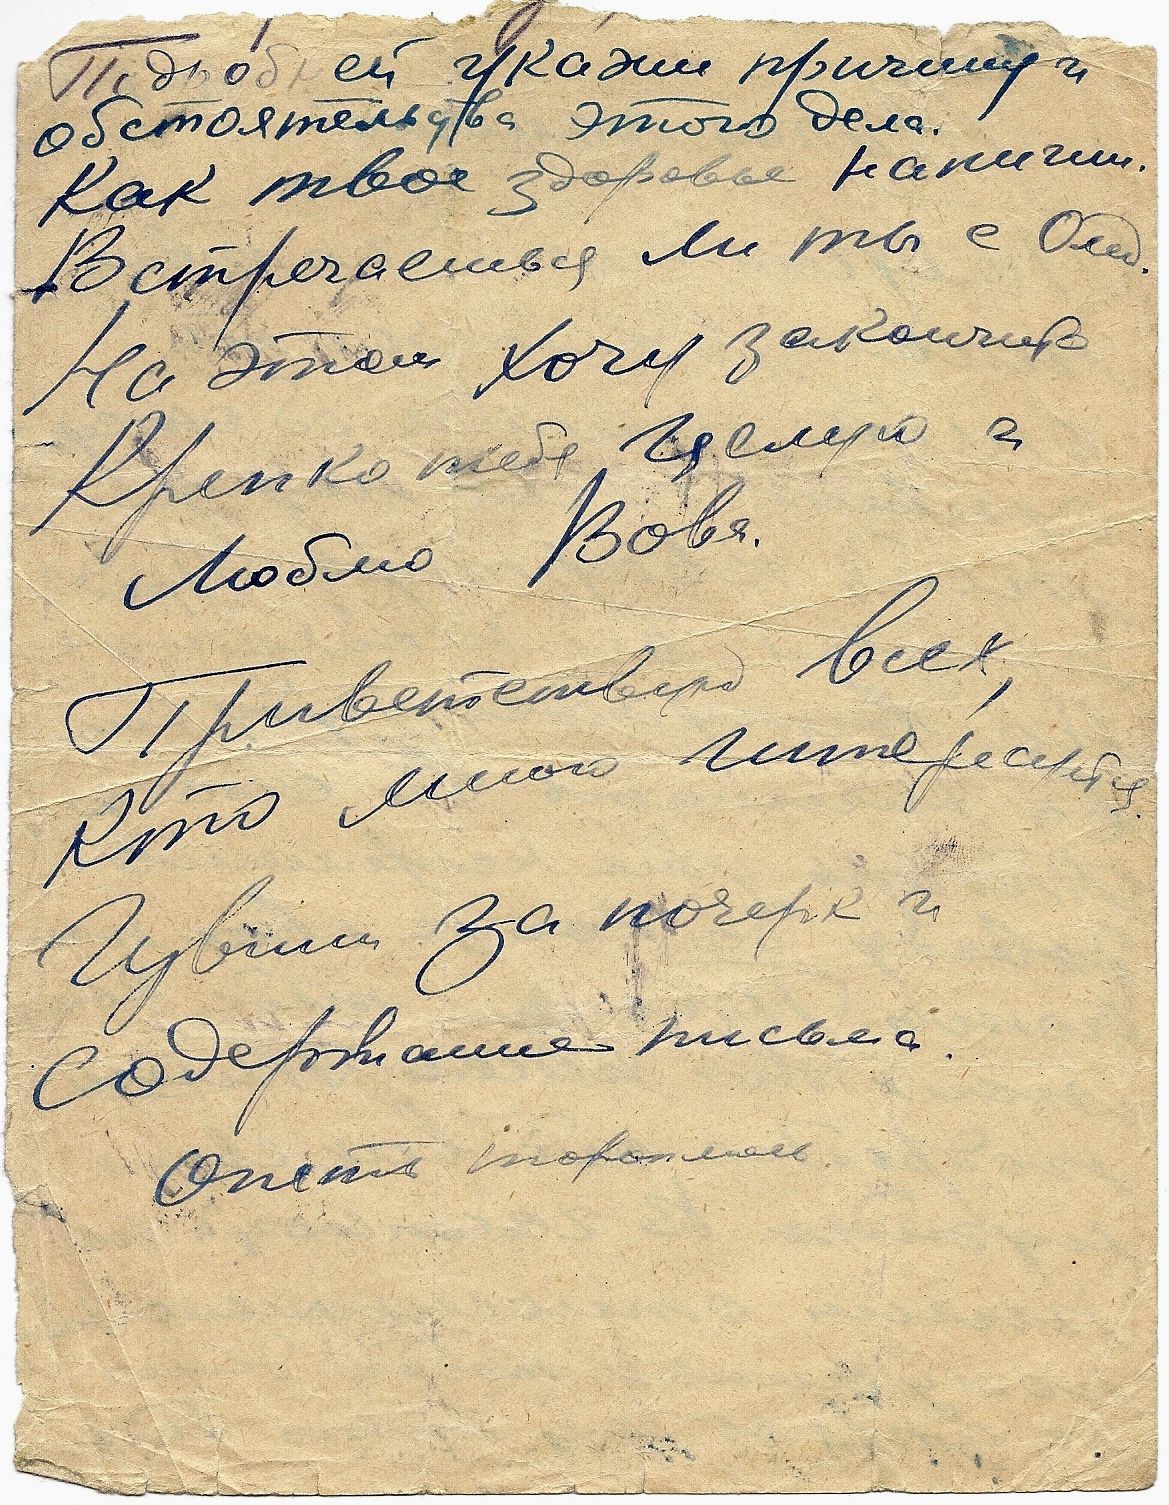 Подробней укажи причину и
обстоятельства этого дела.
Как твое здоровье напиши.
Встречаешься ли ты с
На этом хочу закончить
Крепко тебя целую и
люблю Вова.
Приветствую всех,
кто мною интересуется.
Извини за почерк и
содержание письма.
Опять тороплюсь.